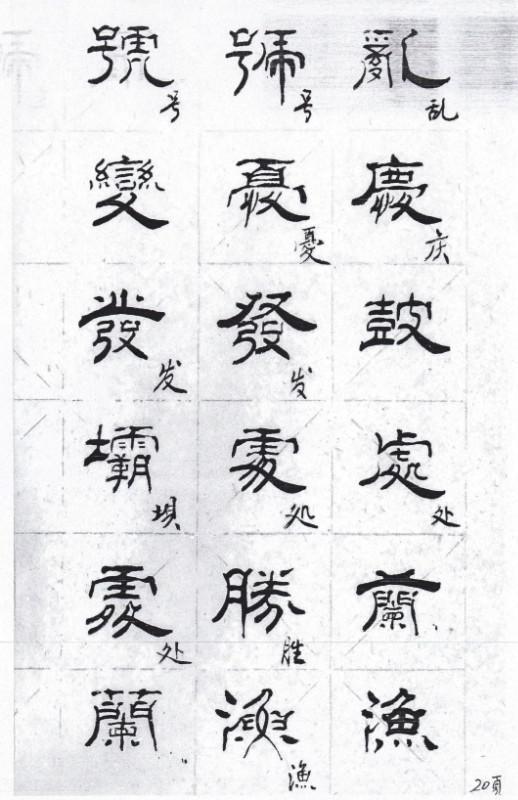 亂乱
慶庆
鼓
處处
蘭
漁
號号
憂憂
發发
處処
勝胜
漁漁
號号
變
發发
壩垻
處处
蘭
20頁